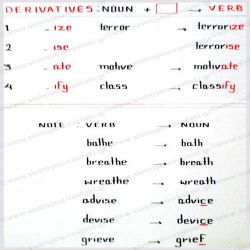 DERIVATIVES: NOUN + □ → VERB
1 _ ize terror → terrorize
2 _ ise terrorise
3 _ ate motive → motivate
4. _ ify class → classify
NOTE: VERB → NOUN
bathe → bath
breathe → breath
wreathe → wreath
advise → advice
devise → device
grieve → grief